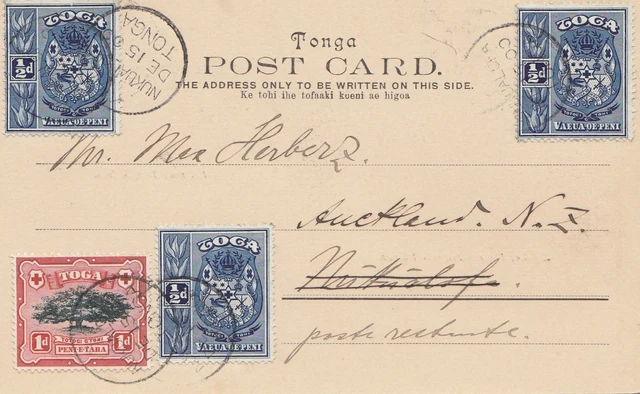 TOGA
½d
½d
VAEUA·OE·PENI
NUKUALOFA
DE 15 00
TONGA
Tonga
POST CARD.
THE ADDRESS ONLY TO BE WRITTEN ON THIS SIDE.
Ke tohi ihe tofaaki kueni ae higoa
TOGA
½d
½d
VAEUA·OE·PENI
Mr. Max Herberz.
Auckland. N. Z.
Nukualofa.
poste restante.
TOGA
½d
½d
VAEUA·OE·PENI
TOGA
1d
1d
PENI·E·TAHA